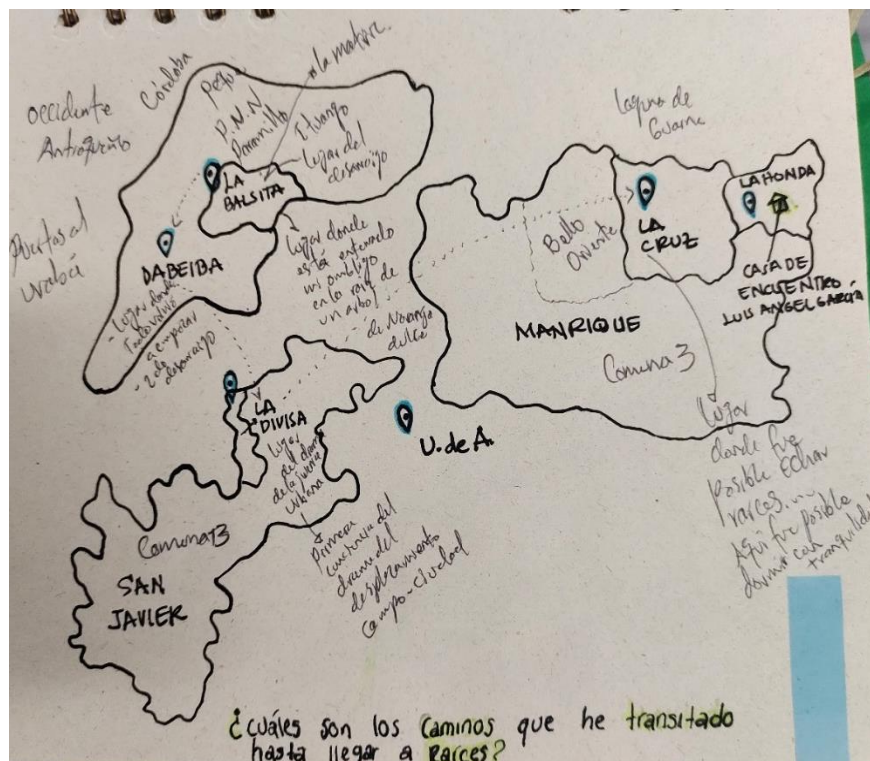 Occidente
Antioqueño
Córdoba
Peque
P.N.N
Paramillo
Ituango
Lugar del
desarraigo
la matare
LA
BALSITA
Puertas al
Urabá
DABEIBA
Lugar donde
está enterrado
mi ombligo
en la raíz de
un arbol
de Naranjo
dulce
- Lugar donde
Todo volvió
a empezar
- 2do
desarraigo
LA
DIVISA
Lugar
del drama
de la guerra
urbana
Primera
conciencia del
drama del
desplazamiento
campo-ciudad
Comuna 13
SAN
JAVIER
U. de A.
Laguna de
Guarne
Bello
Oriente
LA
CRUZ
LA HONDA
CASA DE
ENCUENTRO
LUIS ANGEL GARCÍA
MANRIQUE
Comuna 3
Lugar
donde fue
posible Echar
raices...
Aquí fue posible
dormir con
tranquilidad
¿Cuáles son los caminos que he transitado
hasta llegar a Raíces?